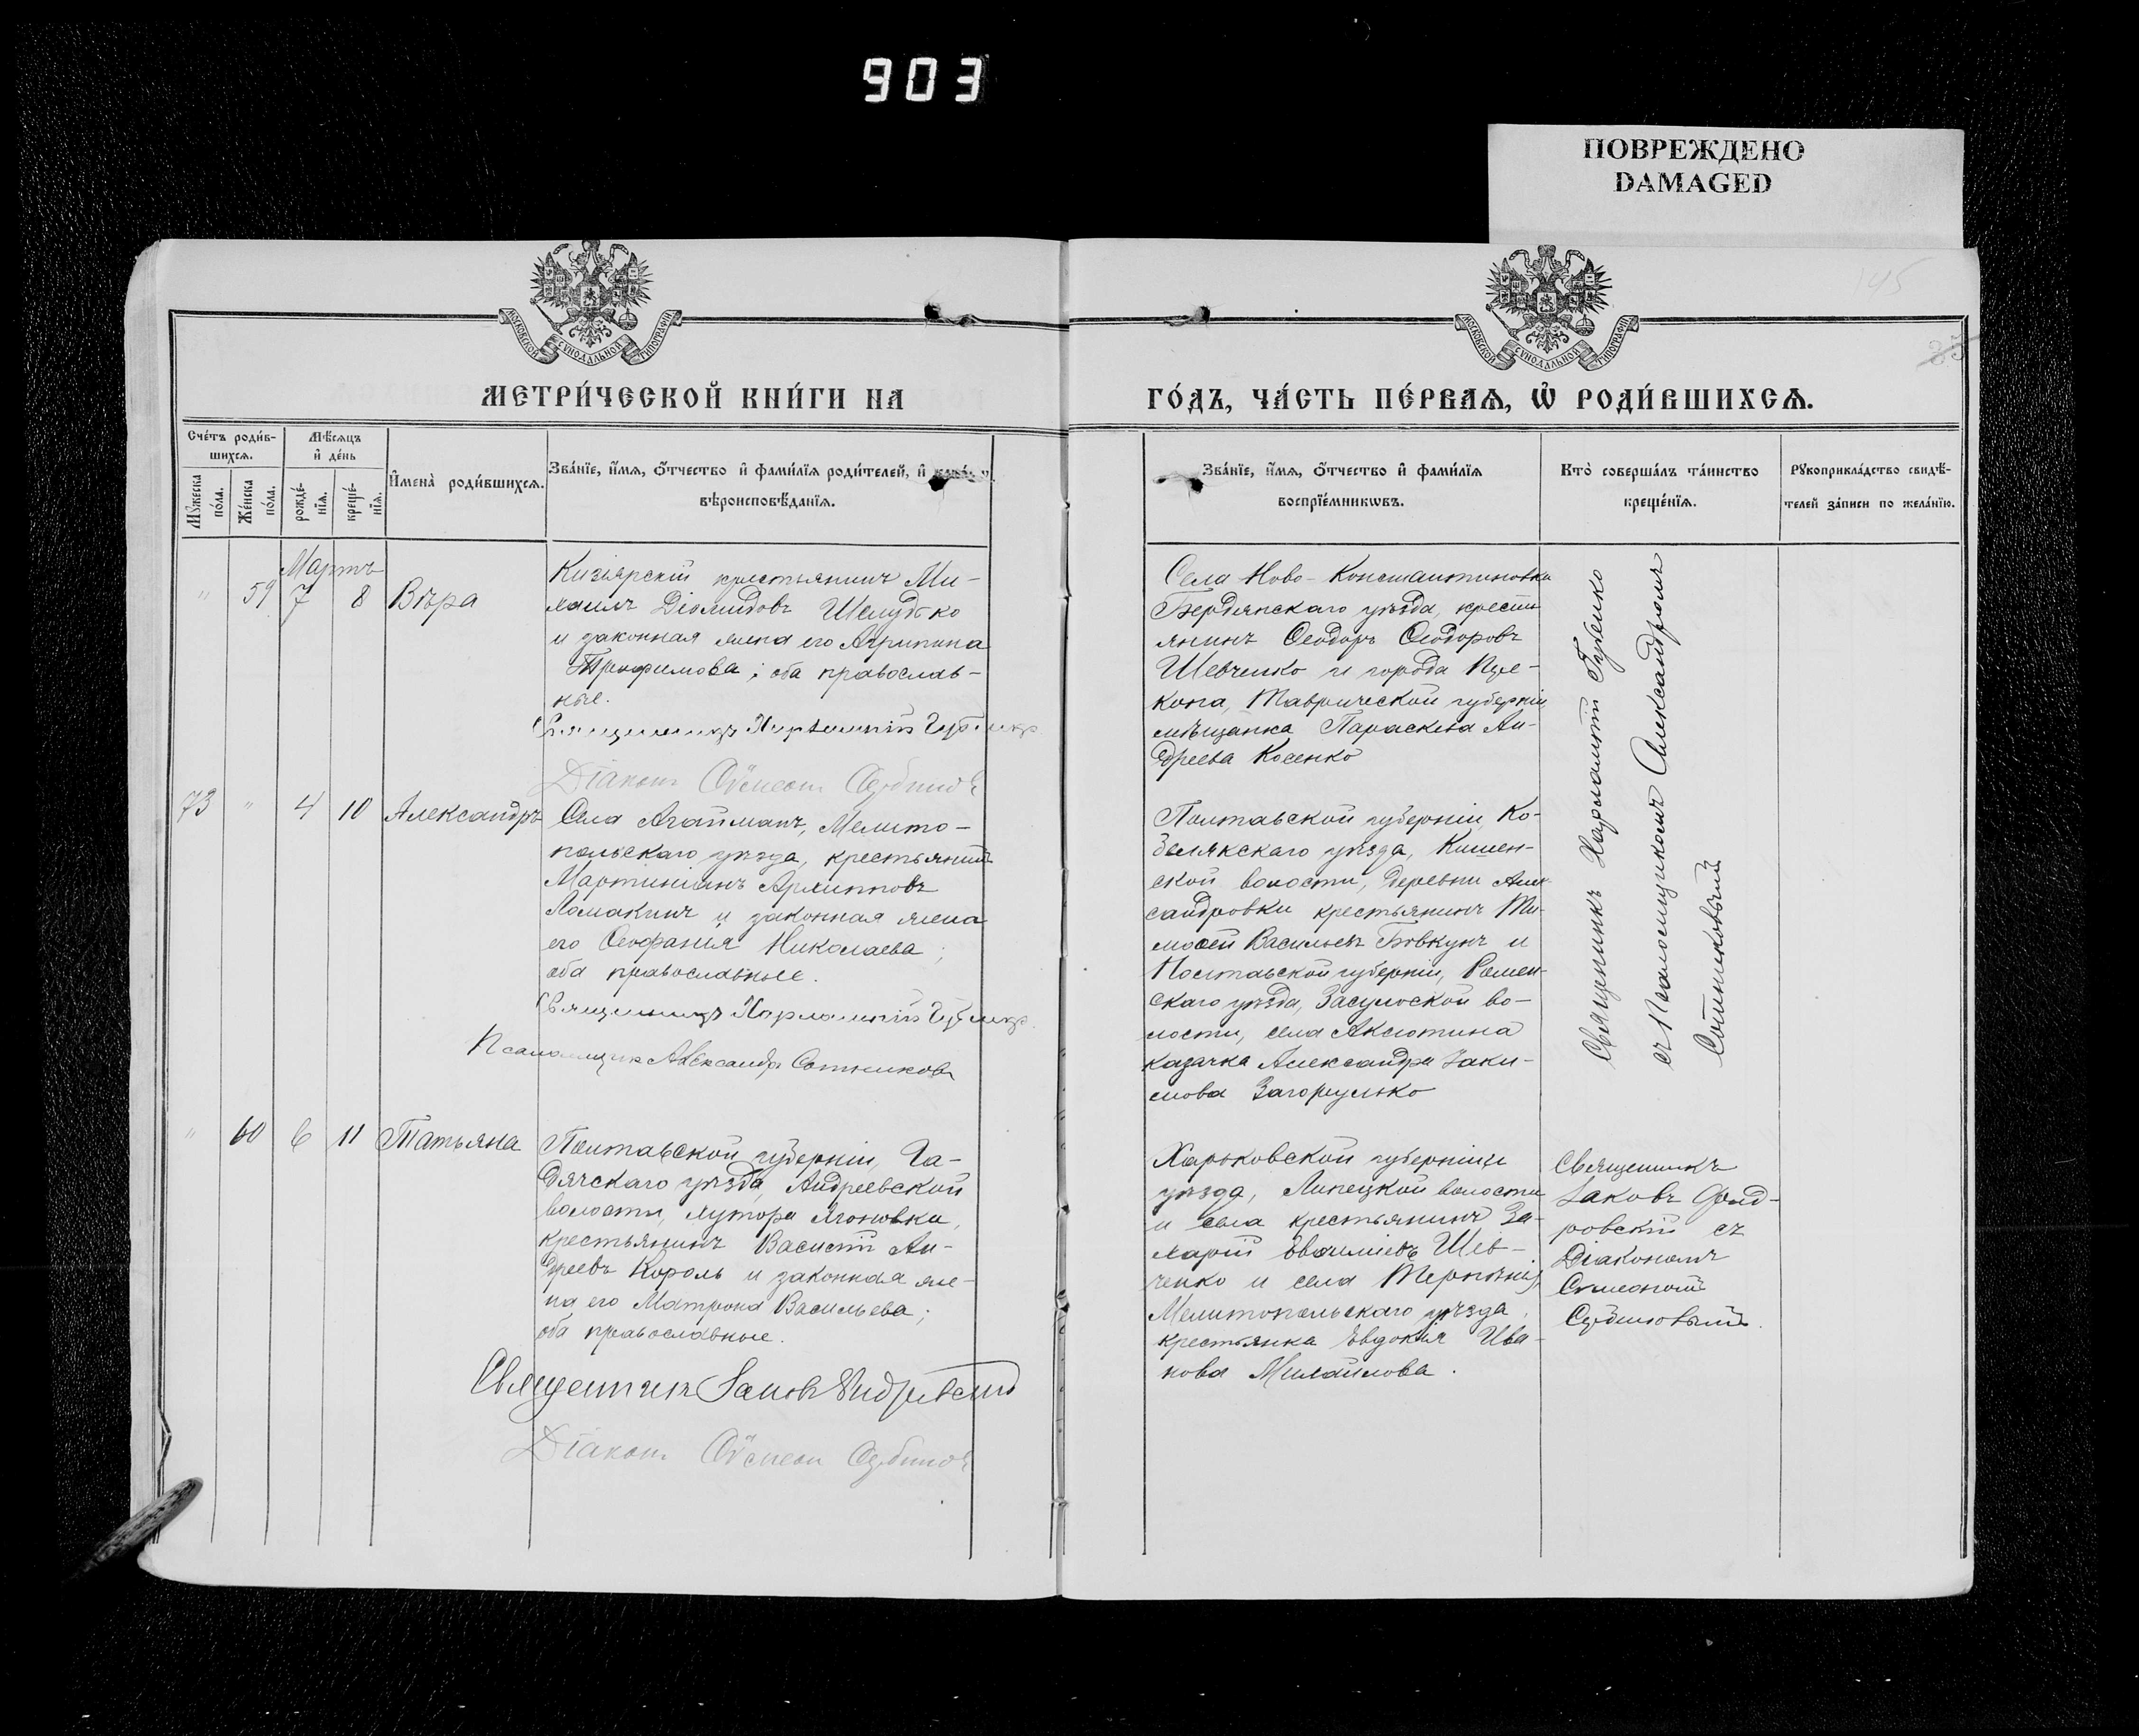 903
ПОВРЕЖДЕНО
DAMAGED
145
25
МОСКОВСКОЙ СУНОДАЛЬНОЙ ТИПОГРАФІИ
МОСКОВСКОЙ СУНОДАЛЬНОЙ ТИПОГРАФІИ
МЕТРИ́ЧЕСКОЙ КНИ́ГИ НА
ГО́ДЪ, ЧА́СТЬ ПЕ́РВАѦ, Ѡ РОДИ́ВШИХСѦ.
Сче́тъ роди́в-
шихсѧ.
Мѣ́сѧцъ
и҆ де́нь
Мꙋ́жеска
по́ла.
Же́нска
по́ла.
рожде́-
нїѧ.
креще́-
нїѧ.
И҆мена̀ роди́вшихсѧ.
Зва́нїе, и҆́мѧ, ѻ҆́тчество и҆ фами́лїѧ роди́телей, и҆
вѣроисповѣ́данїѧ.
Зва́нїе, и҆́мѧ, ѻ҆́тчество и҆ фами́лїѧ
воспрїе́мникѡвъ.
Кто̀ соверша́лъ та́инство
креще́нїѧ.
Рꙋкоприкла́дство свидѣ́-
телей за́писи по жела́нїю.
Мартъ
" 59 7 8 Вѣра
Кизіярскій крестьянинъ Ми-
хаилъ Діомидовъ Шелудько
и законная жена его Агрипина
Трофимова; оба православ-
ные.
Священникъ Харлампій Губенко
Діаконъ Сѵмеонъ
Села Ново-Константиновки
Бердянскаго уѣзда, кресть
янинъ Ѳеодоръ Ѳеодоровъ
Шевченко и города Пере-
копа, Таврической губерніи
мѣщанка Параскева Ан-
дреева Косенко
Священникъ Харлампій Губенко
съ Псаломщикомъ Александромъ
Сотниковымъ
73 " 4 10 Александръ
Села Агайманъ, Мелито-
польскаго уѣзда, крестьянинъ
Мартиніанъ Архипповъ
Ломакинъ и законная жена
его Ѳеофанія Николаева;
оба православные.
Священникъ Харлампій Губенко
Псаломщикъ Александръ Сотниковъ
Полтавской губерніи, Ко-
белякскаго уѣзда, Кишен-
ской волости, деревни Алек
сандровки крестьянинъ Ти-
моѳей Васильевъ Бовкунъ и
Полтавской губерніи, Ромен-
скаго уѣзда, Засульской во-
лости, села Аксютина
казачка Александра Іаки-
мова Загорулько
" 60 6 11 Татьяна
Полтавской губерніи, Га-
дячскаго уѣзда, Андреевской
волости, хутора
крестьянинъ Василій Ан-
дреевъ Король и законная же-
на его Матрона Васильева;
оба православные.
Священникъ Іаковъ
Діаконъ Сѵмеонъ
Харьковской губерніи и
уѣзда, Липецкой волости
и села крестьянинъ За-
харій Евѳиміевъ Шев-
ченко и села Терпѣнія,
Мелитопольскаго уѣзда,
крестьянка Евдокія Ива-
нова Михайлова.
Священникъ
Іаковъ
ровскій съ
Діакономъ
Симеономъ